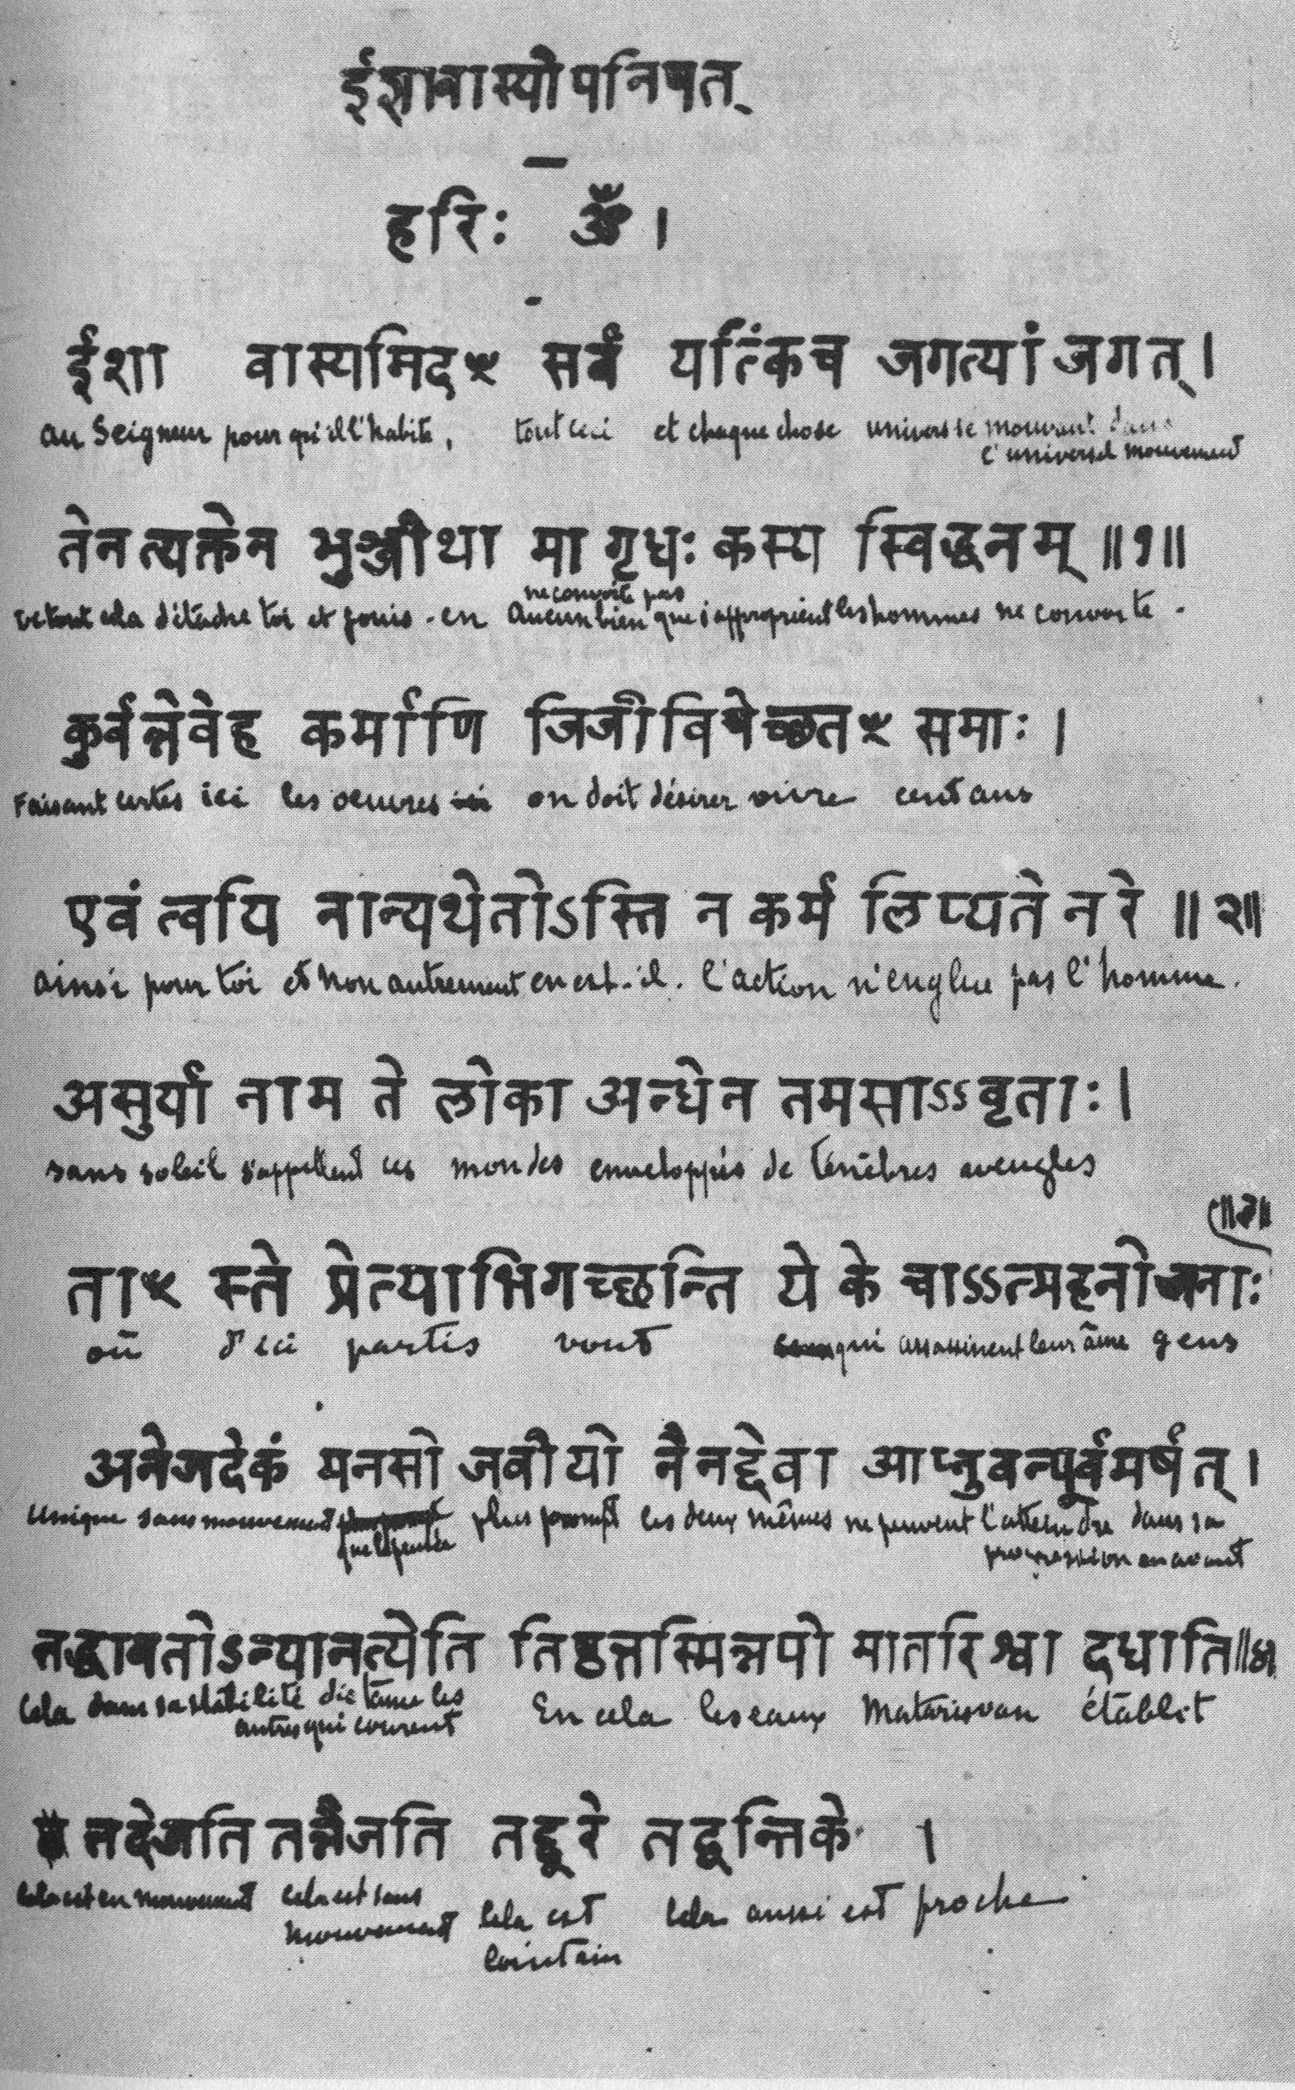 ईशावास्योपनिषत्
हरिः ॐ ।
ईशा वास्यमिदꣳ सर्वं यत्किंच जगत्यां जगत् ।
au Seigneur pour qu'il l'habite, tout ceci et chaque chose univers se mouvant dans
l'universel mouvement
तेन त्यक्तेन भुञ्जीथा मा गृधः कस्य स्विद्धनम् ॥१॥
ne convoite pas
De tout cela détache toi et jouis - en Aucun bien que s'approprient les hommes ne convoite .
कुर्वन्नेवेह कर्माणि जिजीविषेच्छतꣳ समाः ।
Faisant certes ici les oeuvres ici on doit désirer vivre cent ans
एवं त्वयि नान्यथेतोऽस्ति न कर्म लिप्यते नरे ॥ २॥
ainsi pour toi et non autrement en est-il . l'action n'englue pas l'homme .
असुर्या नाम ते लोका अन्धेन तमसाऽऽवृताः ।
sans soleil s'appellent ces mondes enveloppés de ténèbres aveugles
॥३॥
ताꣳ स्ते प्रेत्याभिगच्छन्ति ये के चाऽऽत्महनो जनाः
où d'ici partis vont qui assassinent leur âme gens
अनेजदेकं मनसो जवीयो नैनद्देवा आप्नुवन्पूर्वमर्षत् ।
Unique sans mouvement plus prompt les dieux mêmes ne peuvent l'atteindre dans sa
que la pensée progression en avant
तद्धावतोऽन्यानत्येति तिष्ठत्तस्मिन्नपो मातरिश्वा दधाति ॥४॥
Cela dans sa stabilité distance les En cela les eaux Matariswan établit
autres qui courent
तदेजति तन्नैजति तद्दूरे तद्वन्तिके ।
Cela est en mouvement cela est sans Cela est Cela aussi est proche
mouvement lointain